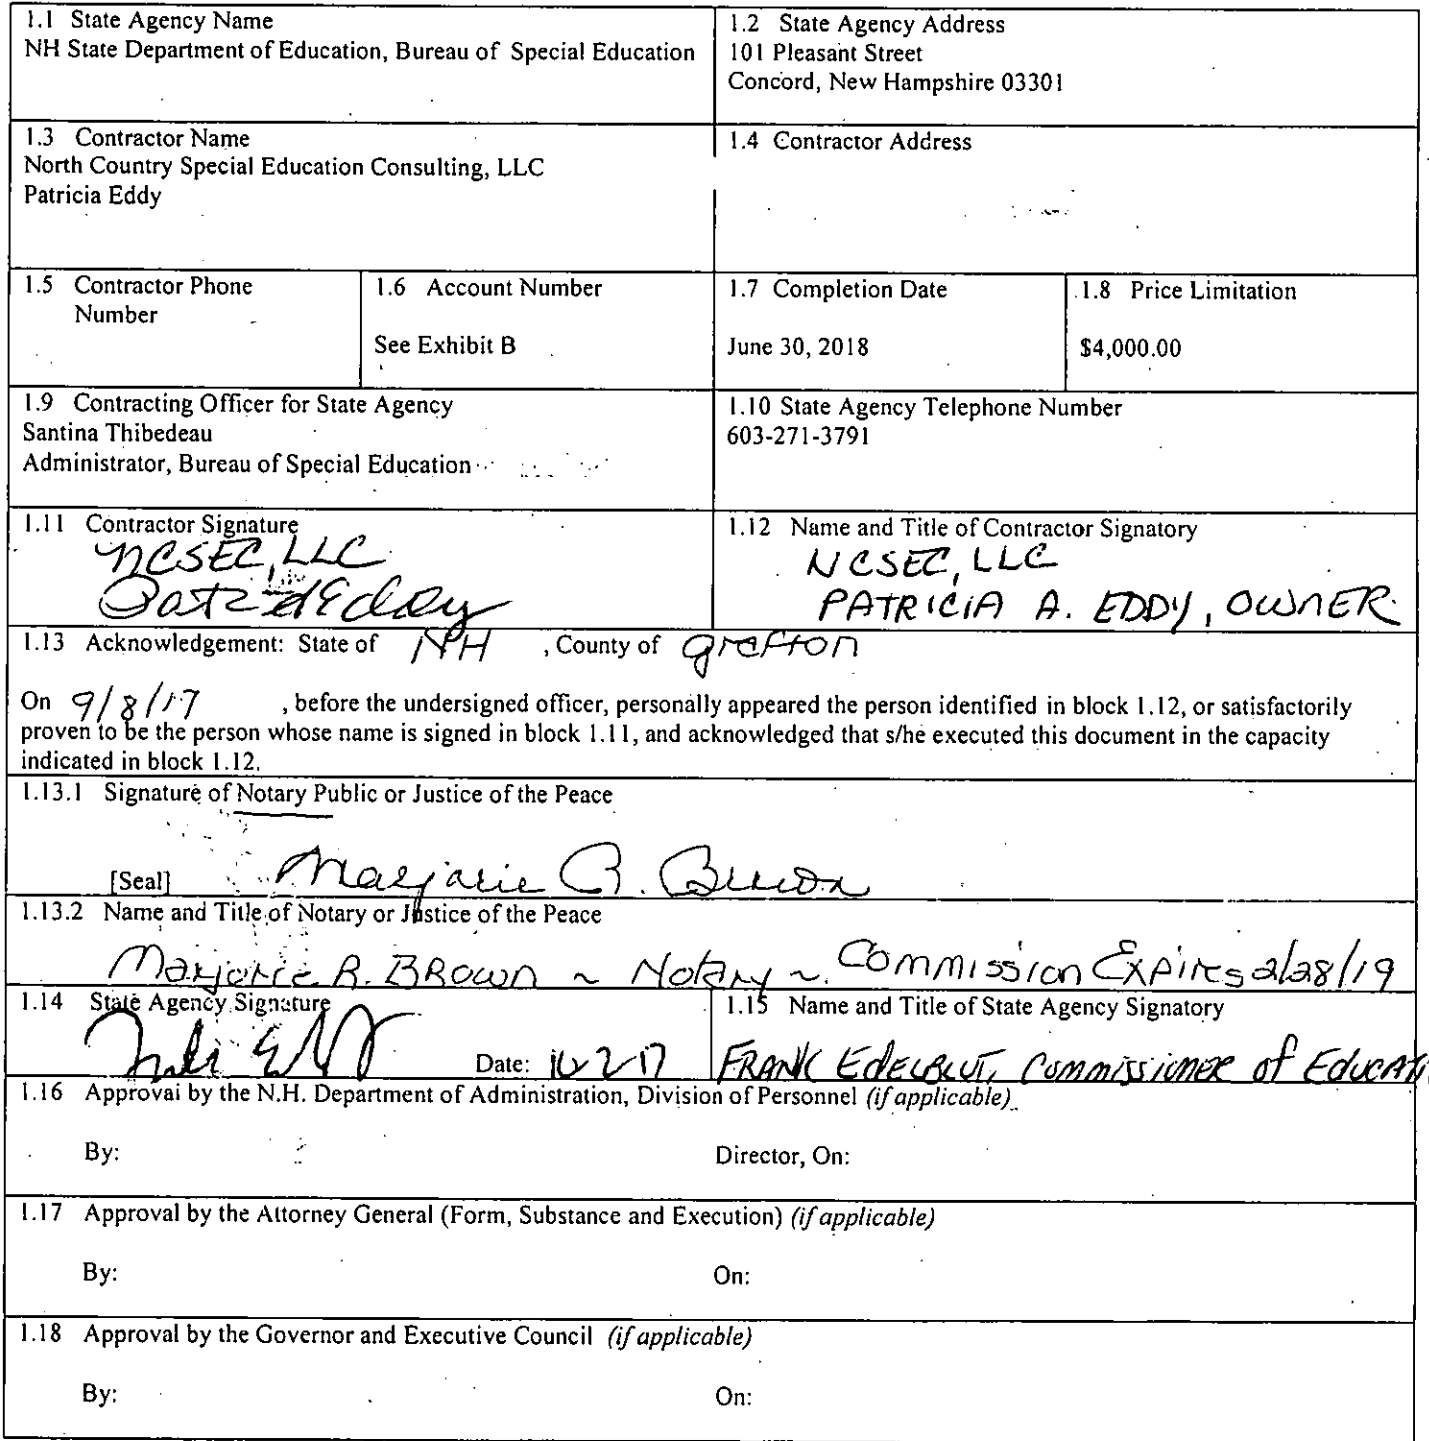 1.1 State Agency Name
NH State Department of Education, Bureau of Special Education
1.2 State Agency Address
101 Pleasant Street
Concord, New Hampshire 03301
1.3 Contractor Name
North Country Special Education Consulting, LLC
Patricia Eddy
1.4 Contractor Address
1.5 Contractor Phone
Number
1.6 Account Number
See Exhibit B
1.7 Completion Date
June 30, 2018
1.8 Price Limitation
$4,000.00
1.9 Contracting Officer for State Agency
Santina Thibedeau
Administrator, Bureau of Special Education
1.10 State Agency Telephone Number
603-271-3791
1.11 Contractor Signature
NCSEC, LLC
1.12 Name and Title of Contractor Signatory
NCSEC, LLC
PATRICIA A. EDDY, OWNER
1.13 Acknowledgement: State of NH , County of Grafton
On 9/8/17 , before the undersigned officer, personally appeared the person identified in block 1.12, or satisfactorily
proven to be the person whose name is signed in block 1.11, and acknowledged that s/he executed this document in the capacity
indicated in block 1.12.
1.13.1 Signature of Notary Public or Justice of the Peace
[Seal] Marjorie R. Brown
1.13.2 Name and Title of Notary or Justice of the Peace
Marjorie R. BROWN ~ Notary ~ Commission Expires 2/28/19
1.14 State Agency Signature
Date:
1.15 Name and Title of State Agency Signatory
FRANK EdelBLUT, Commissioner of Educati
1.16 Approval by the N.H. Department of Administration, Division of Personnel (if applicable)
By: Director, On:
1.17 Approval by the Attorney General (Form, Substance and Execution) (if applicable)
By: On:
1.18 Approval by the Governor and Executive Council (if applicable)
By: On: